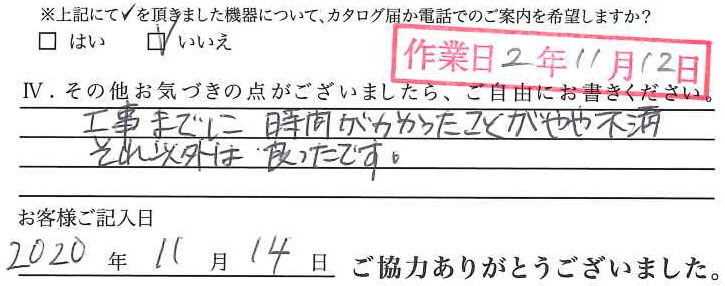 ※上記にて✓を頂きました機器について、カタログ届か電話でのご案内を希望しますか?
□ はい ☑ いいえ
作業日2年11月12日
Ⅳ．その他お気づきの点がございましたら、ご自由にお書きください。
工事までに 時間がかかったことがやや不満
それ以外は 良ったです。
お客様ご記入日
2020 年 11 月 14 日 ご協力ありがとうございました。